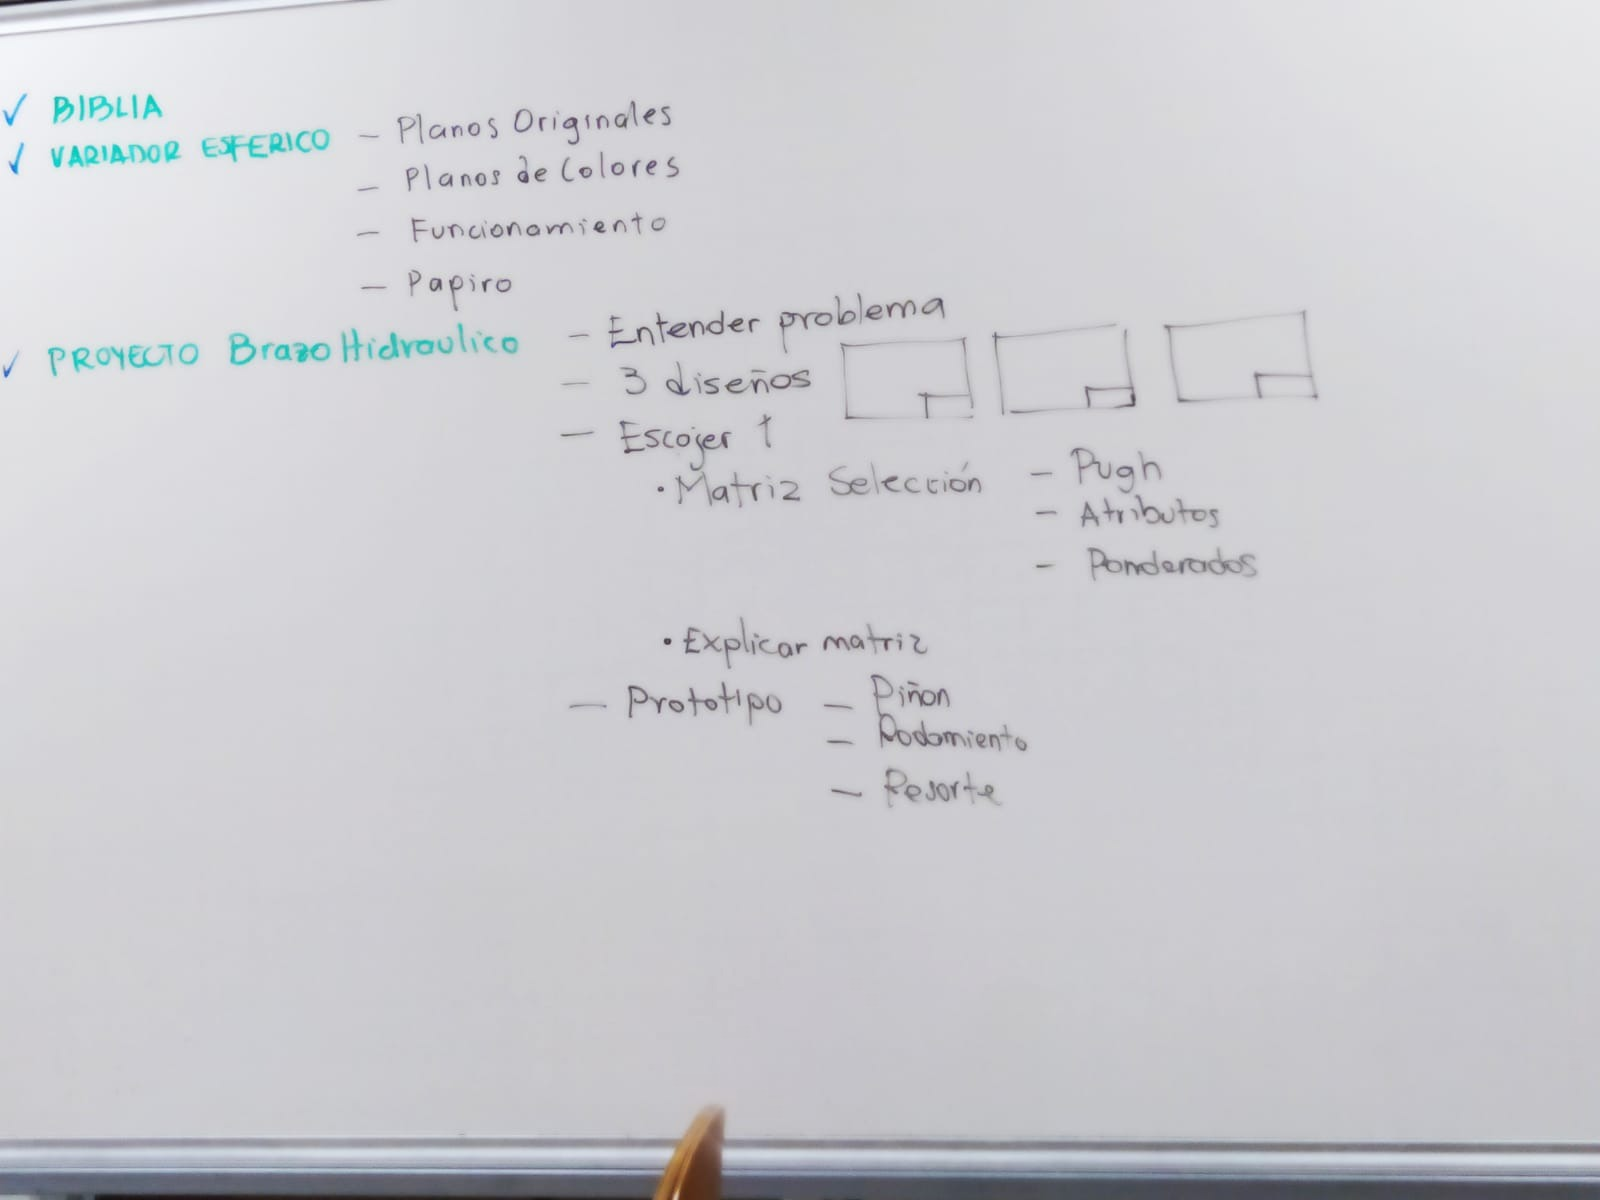 ✓ BIBLIA
✓ VARIADOR ESFERICO - Planos Originales
- Planos de Colores
- Funcionamiento
- Papiro
✓ PROYECTO Brazo Hidraulico - Entender problema
- 3 diseños
- Escojer 1
• Matriz Selección - Pugh
- Atributos
- Ponderados
• Explicar matriz
- Prototipo - Piñon
- Rodamiento
- Resorte